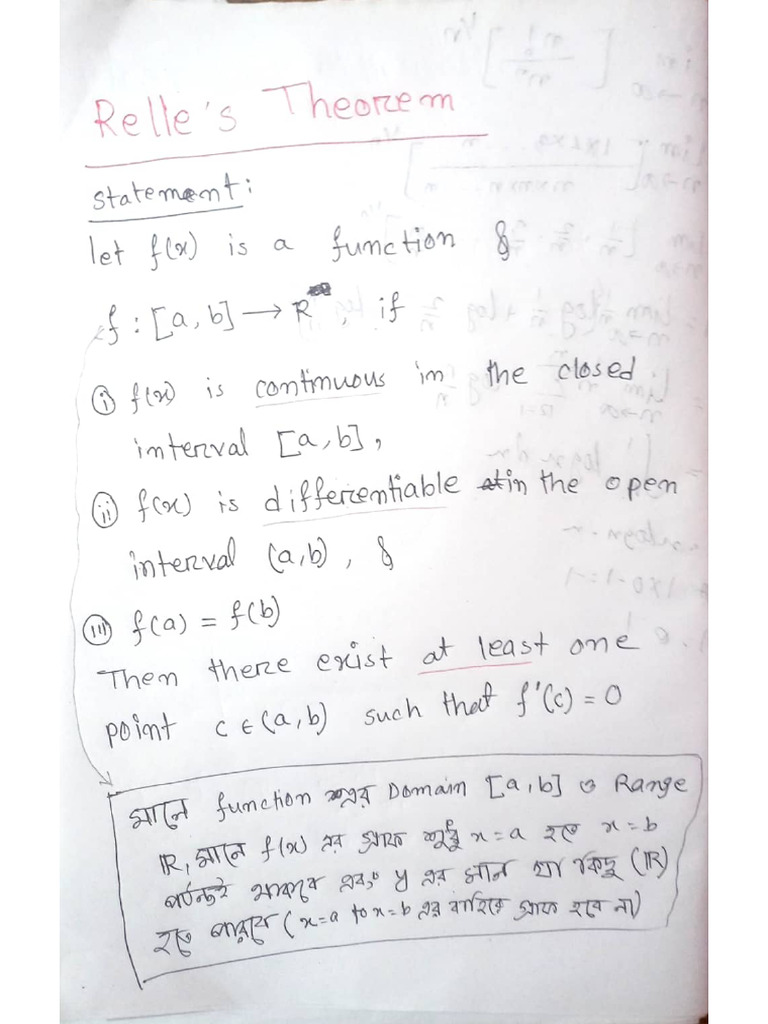 Relle's Theorem
Statement:
let f(x) is a function &
f : [a, b] → R, if
(i) f(x) is continuous in the closed
interval [a, b],
(ii) f(x) is differentiable in the open
interval (a, b), &
(iii) f(a) = f(b)
Then there exist at least one
point c ∈ (a, b) such that f'(c) = 0
মানে function এর Domain [a, b] ও Range
IR, মানে f(x) এর গ্রাফ শুধু x = a হতে x = b
পর্যন্তই থাকবে এবং y এর মান যা কিছু (IR)
হতে পারবে (x=a to x=b এর বাহিরে গ্রাফ হবে না)